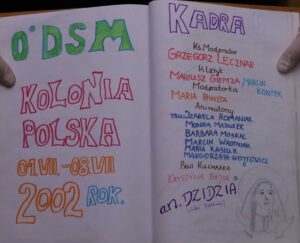 O'DSM
KOLONIA
POLSKA
01.VII.-08.VII
2002 ROK.
KADRA
Ks. Moderator
GRZEGORZ LECZNAR
Kleryk
MARIUSZ GIEMZA MARCIN KONTEK
Moderatorka
MARIA BUSZTA
Animatorzy
IZABELA ROMANIAK
MONIKA MAZUREK
BARBARA MOSKAL
MARCIN WOŹNIAK
MARIA KASIUK
MAŁGORZATA WOJTOWICZ
Pani Kucharka
KRYSTYNA
an. DZIDZIA